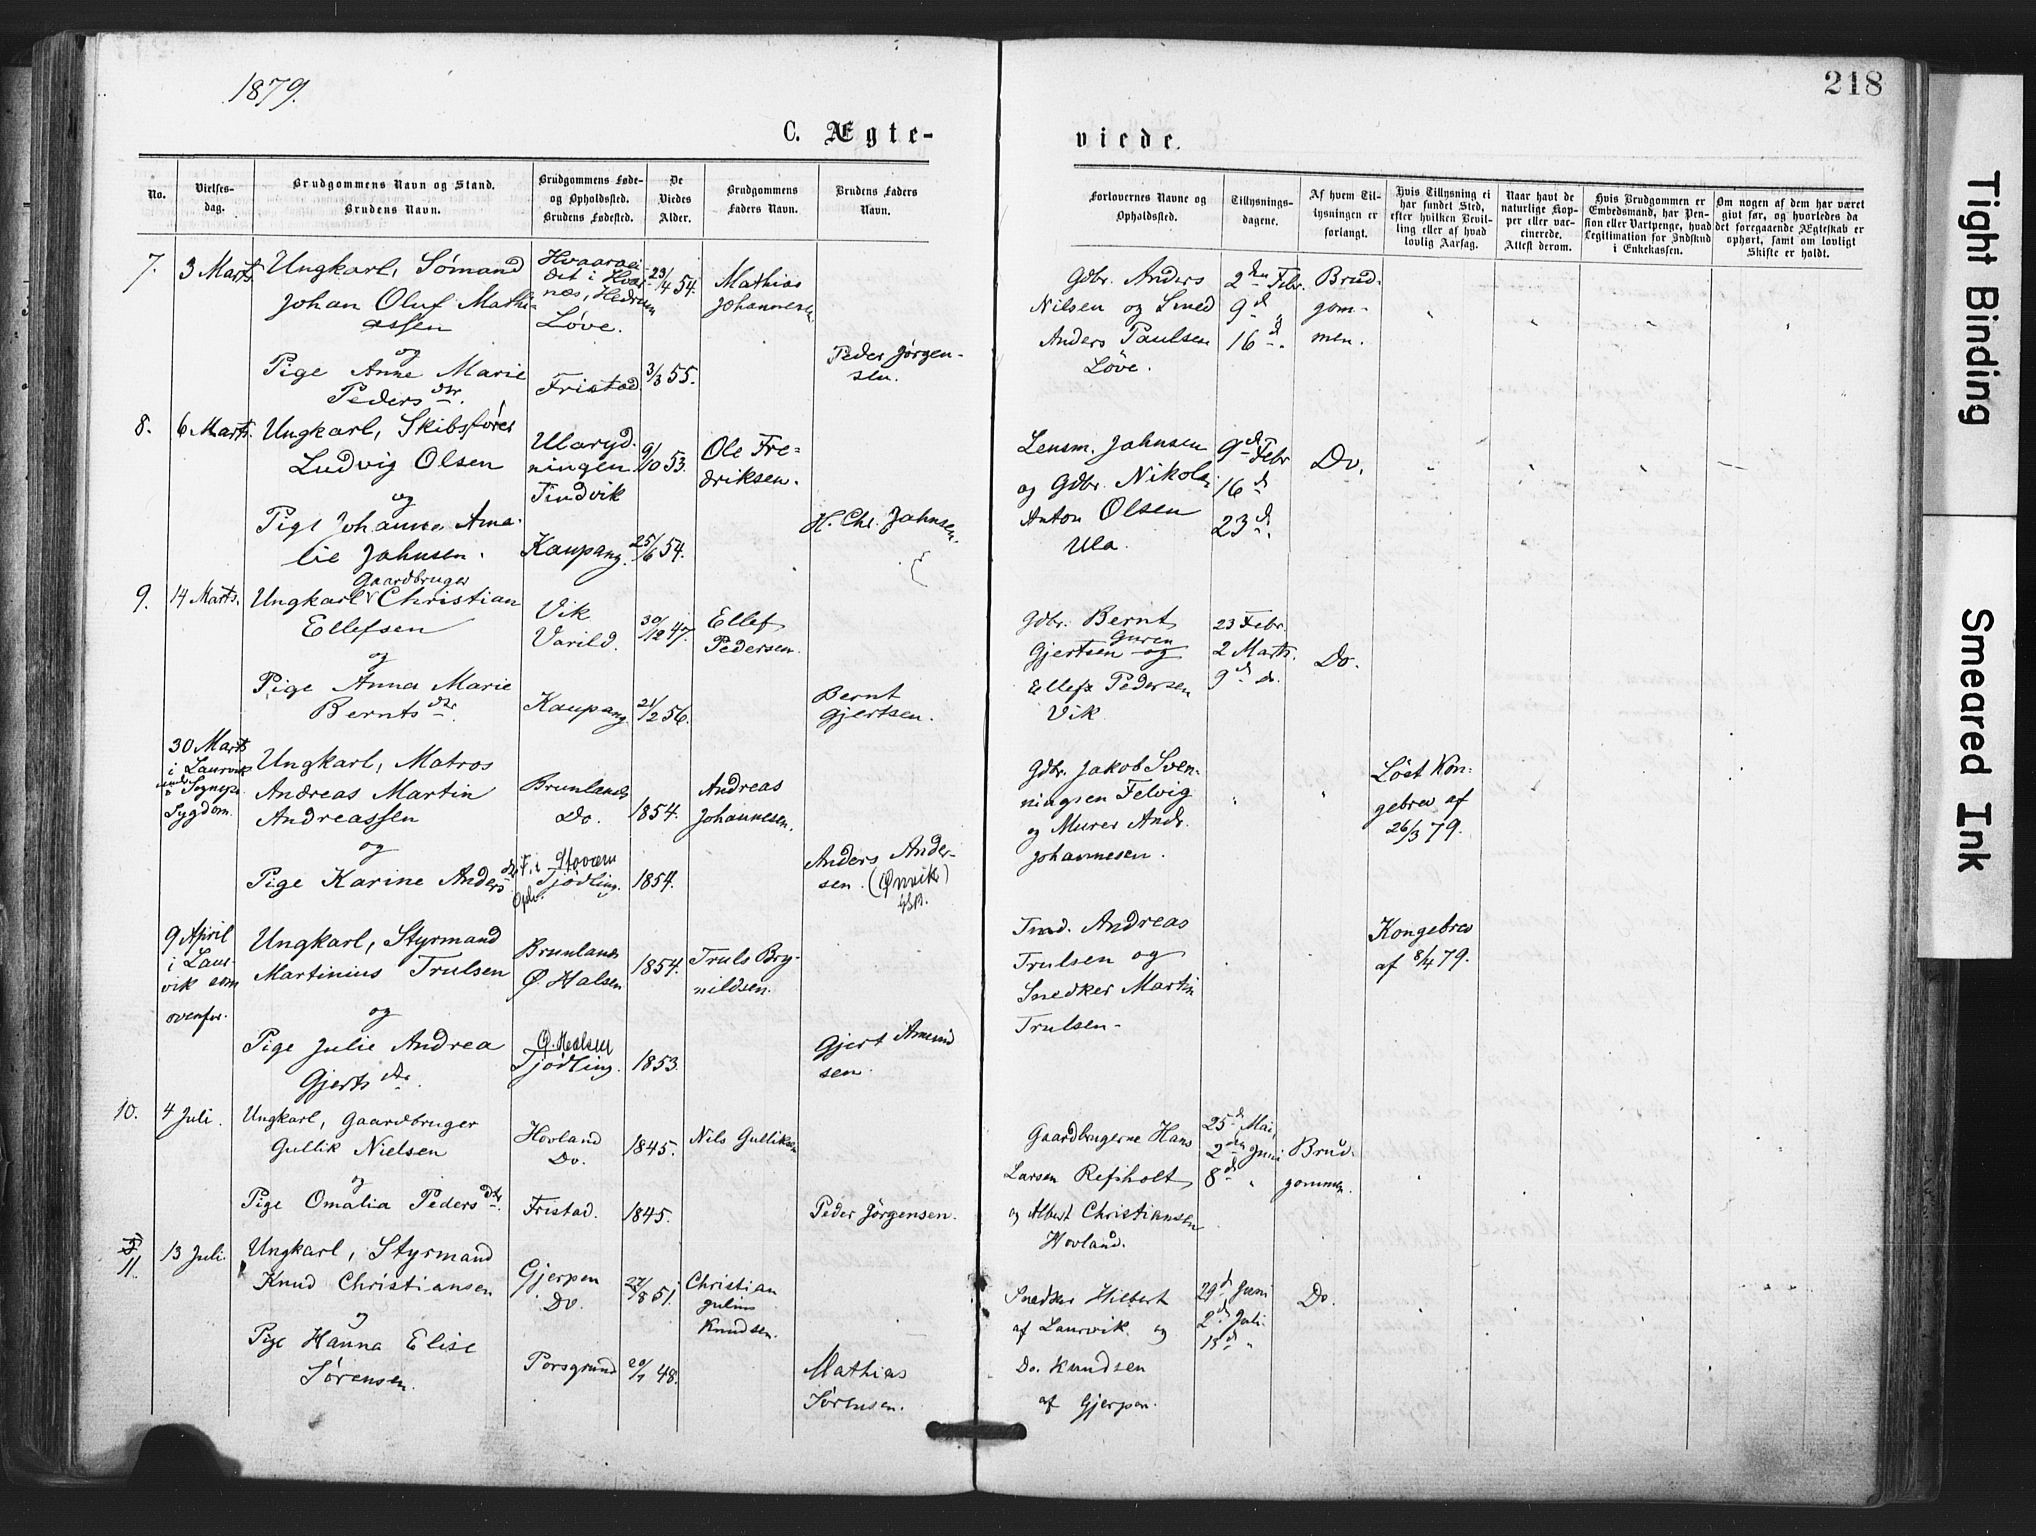 1879.
218
C. Ægte-
viede.
No.
Vielses-
dag.
Brudgommens Navn og Stand.
Brudens Navn.
Brudgommens Føde-
og Opholdssted.
Brudens Fødested.
De
Viedes
Alder.
Brudgommens
Faders Navn.
Brudens Faders
Navn.
Forlovernes Navne og
Opholdssted.
Tillysnings-
dagene.
Af hvem Til-
lysningen er
forlangt.
Hvis Tillysning ei
har fundet Sted,
efter hvilken Bevil-
ling eller af hvad
lovlig Aarsag.
Naar havt de
naturlige Kop-
per eller vac-
cinerede.
Attest derom.
Hvis Brudgommen er
Embedsmand, har Pen-
sion eller Vartpenge, hvad
Legitimation for Indskud
i Enkekassen.
Om nogen af dem har været
givt før, og hvorledes da
det foregaaende Ægteskab er
ophørt, samt om lovligt
Skifte er holdt.
7.
3 Marts
Ungkarl, Sømand
Johan Oluf Mathi-
assen
og
Pige Anne Marie
Peders dtr.
næs, Hedrum
Løve.
Fristad
23/4 54.
3/3 55.
Mathias
Johannesen
Peder Jørgen-
sen.
Gdbr. Anders
Nilsen og Smed
Anders Paulsen
Løve.
2den Febr.
9d "
16d ".
Brud-
gom-
men.
8.
6 Marts.
Ungkarl, Skibsfører
Ludvig Olsen
og
Pige Johanne Ama-
lie Jahnsen.
Ularyd-
ningen
Tindvik
Kaupang
9/10 53.
25/6 54.
Ole Fre-
driksen.
H. Chr. Jahnsen.
Lensm. Jahnsen
og Gdbr. Nikolai
Anton Olsen
Ula.
9d Febr
16d
23d
Do.
9.
14 Marts.
Gaardbruger
Ungkarl Christian
Ellefsen
og
Pige Anna Marie
Bernts dtr.
Vik
Varild.
Kaupang
30/12 47.
21/2 56.
Ellef
Pedersen.
Bernt
Gjertsen.
Gdbr. Bernt
Gjertsen og
Ellef Pedersen
Vik.
23 Febr.
2 Marts.
9d do.
Do.
30 Marts
i Laurvik
Sygdom.
Ungkarl, Matros
Andreas Martin
Andreassen
og
Pige Karine Anders dtr
Brunlanes
Do.
F. i Stovern
Opdr. Tjødling.
1854.
1854.
Andreas
Johannesen.
Anders Ander-
sen. (Ønvik)
Gdbr. Jakob Sven-
ningsen Felvig
og Murer Andr.
Johannesen.
Løst Kon-
gebrev af
26/3 79.
9 April
i Laur-
vik som
ovenfor.
Ungkarl, Styrmand
Martinius Trulsen
og
Pige Julie Andrea
Gjerts dtr.
Brunlanes
Ø. Halsen
Ø. Halsen
Tjødling.
1854.
1853.
Truls Bry-
nildsen.
Gjert Amund
sen.
Tmd. Andreas
Trulsen og
Snedker Martin
Trulsen-
Kongebrev
af 8/4 79.
10.
4 Juli.
Ungkarl, Gaardbruger
Gullik Nielsen
og
Pige Omalia Peders dtr.
Hovland
Do.
Fristad.
1845.
1845.
Nils Gulliksen
Peder Jørgensen.
Gaardbrugerne Hans
Larsen Refsholt
og Albert Christiansen
Hovland.
25d Mai,
2den Juni
8d "
Brud-
gommen.
11.
13 Juli.
Ungkarl, Styrmand
Knud Christiansen
og
Pige Hanna Elise
Sørensen.
Gjerpen
Do.
Porsgrund
27/8 51.
20/7 48.
Christian
Julius
Knudsen.
Mathias
Sørensen.
Snedker Hilbert
af Laurvik og
Do. Knudsen
af Gjerpen.
29d Juni
2d Juli
13d "
Do.
Tight Binding
Smeared Ink